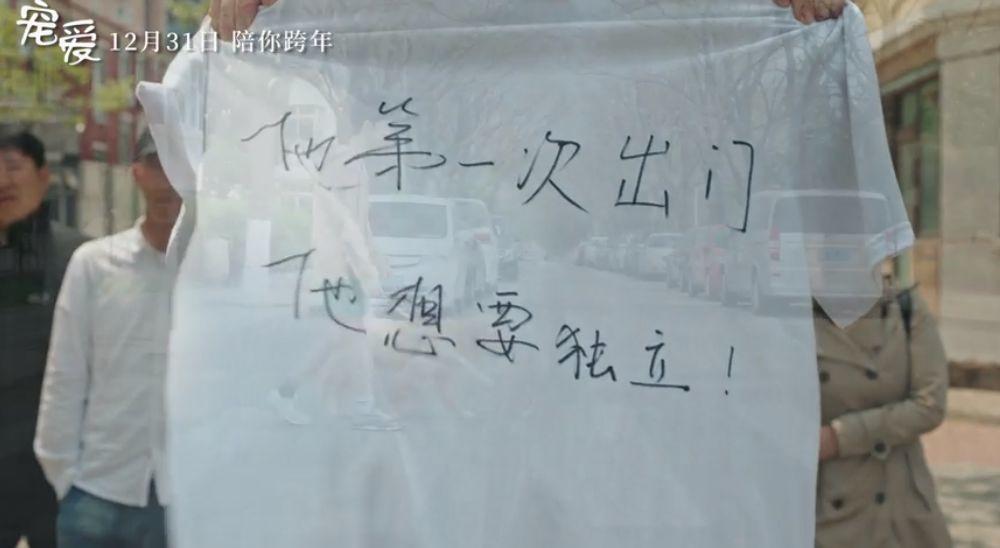 宠爱 12月31日 陪你跨年
他第一次出门
他想要独立！